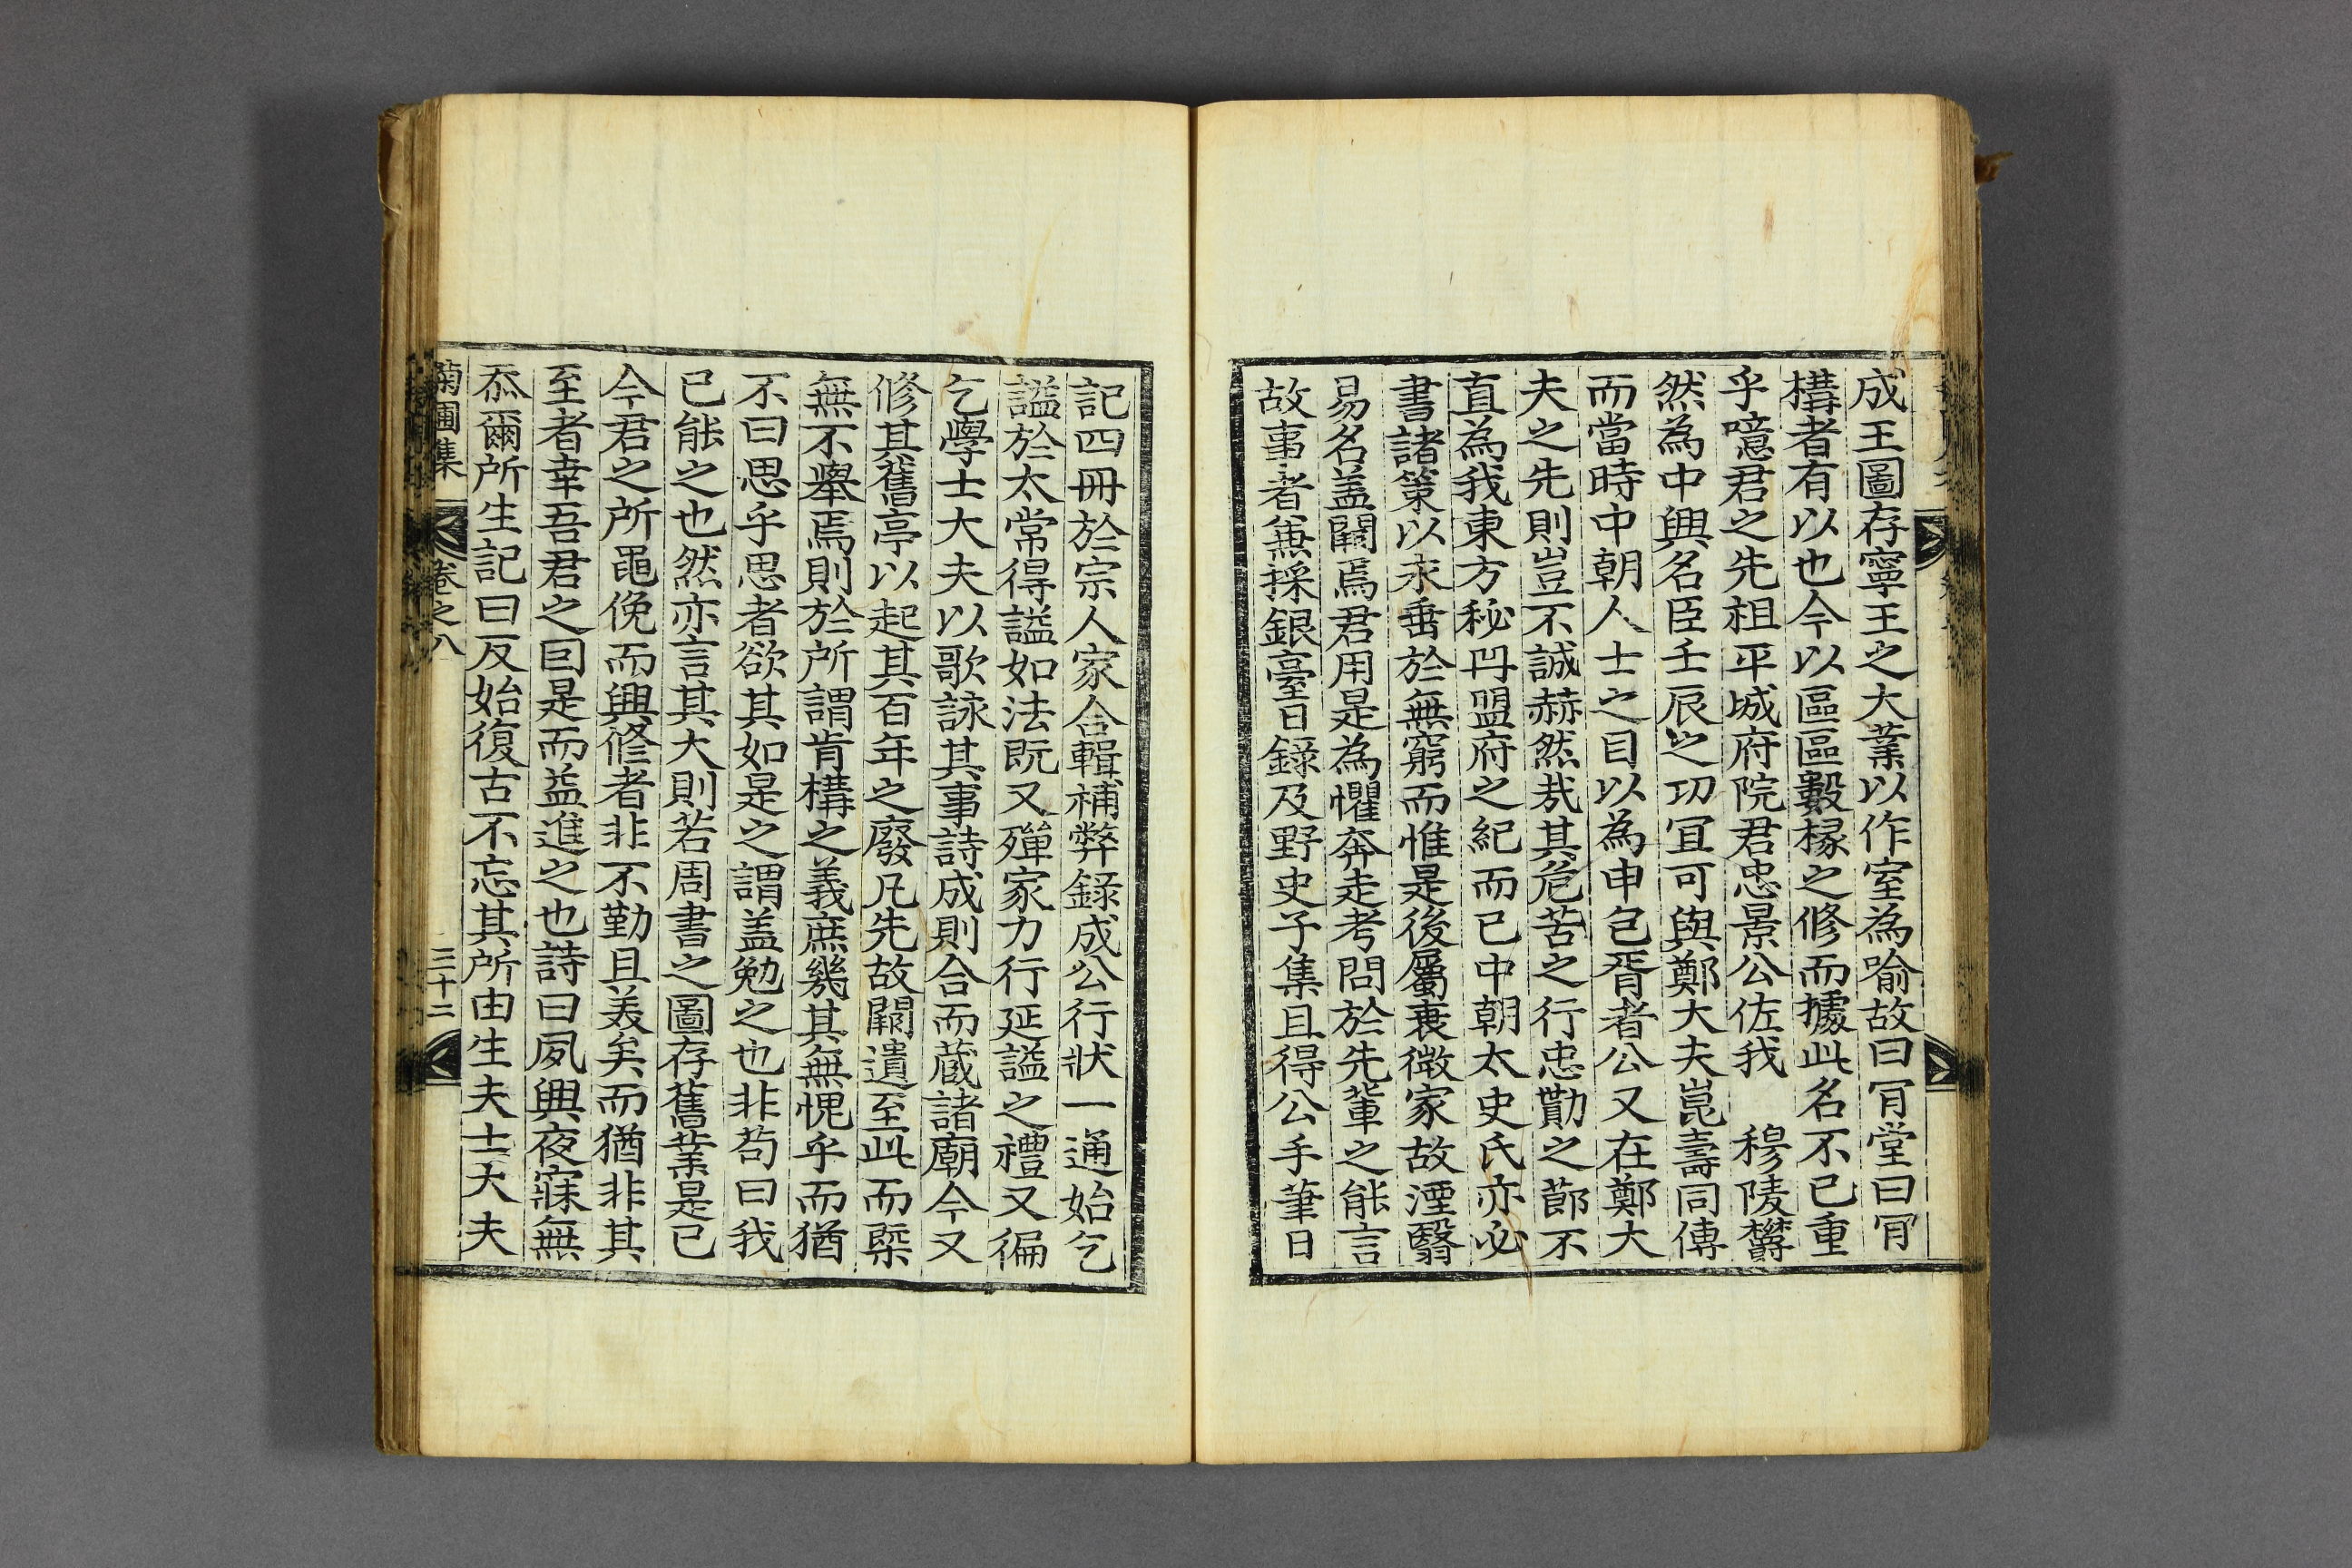 成王圖存寧王之大業以作室為喻故曰肯堂曰肯
構者有以也今以區區數椽之修而據此名不已重
乎噫君之先祖平城府院君忠景公佐我 穆陵欝
然為中興名臣壬辰之功冝可與鄭大夫崑壽同傳
而當時中朝人士之目以為申包胥者公又在鄭大
夫之先則豈不誠赫然㢤其危苦之行忠勤之節不
直為我東方秘丹盟府之紀而已中朝太史氏亦必
書諸策以永垂於無窮而惟是後屬衰微家故湮翳
易名盖闕焉君用是為懼奔走考問於先軰之能言
故事者兼採銀臺日錄及野史子集且得公手筆日
記四冊於宗人家合輯補弊錄成公行狀一通始乞
謚於太常得謚如法既又殫家力行延謚之禮又徧
乞學士大夫以歌詠其事詩成則合而蔵諸廟今又
修其舊亭以起其百年之廢凡先故闕遺至此而㮣
無不擧焉則於所謂肯構之義庶幾其無愧乎而猶
不曰思乎思者欲其如是之謂盖勉之也非苟曰我
已能之也然亦言其大則若周書之圖存舊業是已
今君之所黽俛而興修者非不勤且美矣而猶非其
至者幸吾君之囙是而益進之也詩曰夙興夜寐無
忝爾所生記曰反始復古不忘其所由生夫士大夫
菊圃集 卷之八 三十二